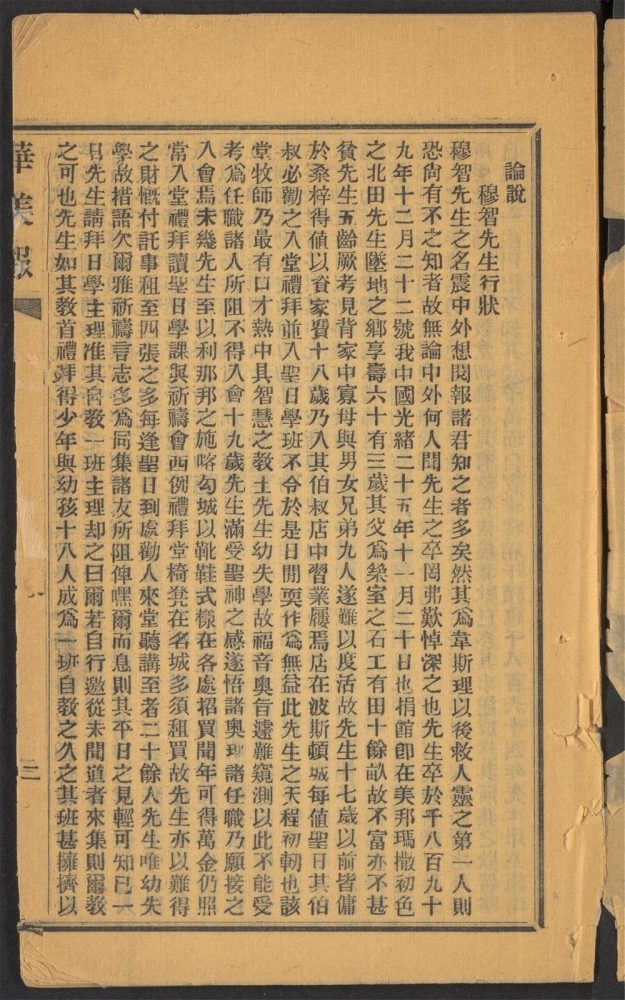 論說
穆智先生行狀
穆智先生之名震中外想閱報諸君知之者多矣然其爲韋斯理以後救人靈之第一人則
恐尙有不之知者故無論中外何人聞先生之卒罔弗歎悼深之也先生卒於千八百九十
九年十二月二十二號我中國光緖二十五年十一月二十日也捐館卽在美邦瑪撒初色
之北田先生墜地之鄕享壽六十有三歲其父爲築室之石工有田十餘畝故不富亦不甚
貧先生五齡厥考見背家中寡母與男女兄弟九人遂難以度活故先生十七歲以前皆傭
於桑梓得値以資家費十八歲乃入其伯叔店中習業屨焉店在波斯頓城每値聖日其伯
叔必勸之入堂禮拜並入聖日學班不令於是日閒耍作爲無益此先生之天程初軔也該
堂牧師乃最有口才熱中具智慧之敎士先生幼失學故福音奧旨遽難窺測以此不能受
考爲任職諸人所阻不得入會十九歲先生滿受聖神之感遂悟諸奧理諸任職乃願接之
入會焉未幾先生至以利那邦之施喀勾城以靴鞋式樣在各處招買閒年可得萬金仍照
常入堂禮拜讀聖日學課與祈禱會西例禮拜堂椅凳在名城多須租買故先生亦以難得
之財慨付託事租至四張之多每逢聖日到處勸人來堂聽講至者二十餘人先生唯幼失
學故措語欠爾雅祈禱言志多爲同集諸友所阻俾嘿爾而息則其平日之見輕可知已一
日先生請拜日學主理准其自敎一班主理却之曰爾若自行邀從未聞道者來集則爾敎
之可也先生如其敎首禮拜得少年與幼孩十八人成爲一班自敎之久之其班甚擁擠以
華美報